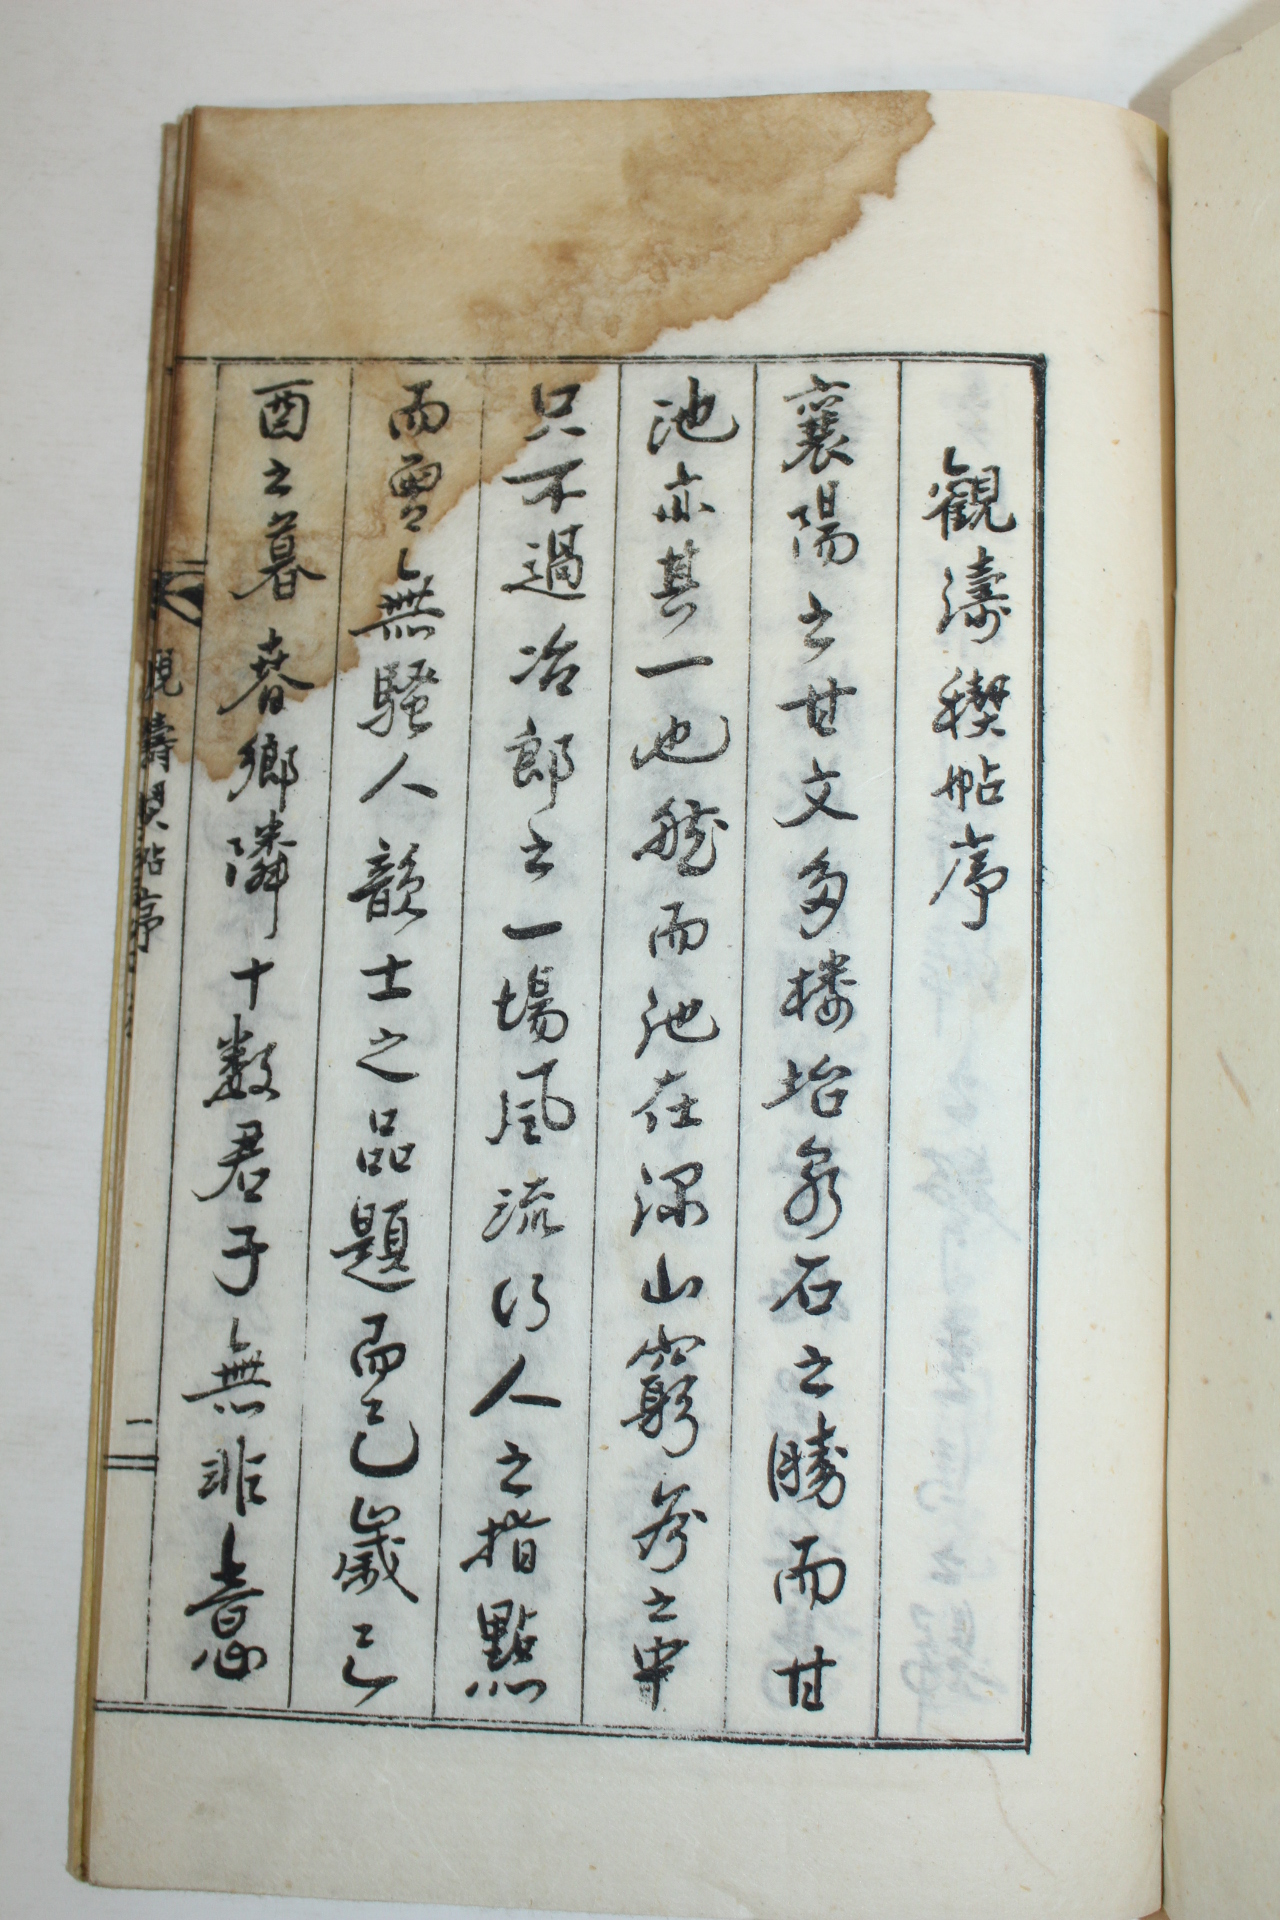 觀濤稧帖序
襄陽之甘文多樓坮泉石之勝而甘
池亦其一也然而池在深山窮谷之中
只不過冶郎之一場風流行人之指點
而無騷人韻士之品題而已歲己
酉之暮春鄉隣十数君子無非意
觀濤稧帖序
一